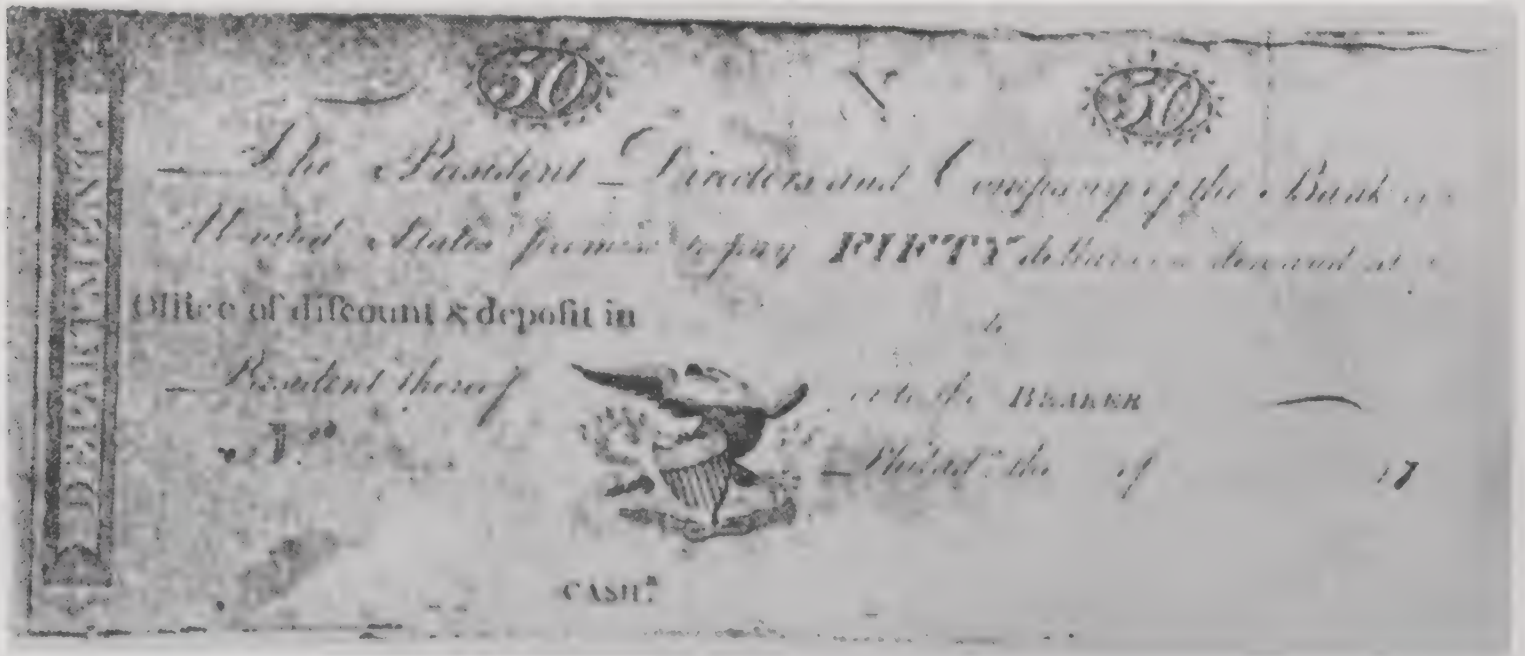 DEPARTMENT.
50 50
The President Directors and Company of the Bank
United States promise to pay FIFTY dollars on demand at
Office of diſcount & depoſit in
to
President thereof or to the BEARER
Philad.ᵃ the of 17
CASH.ᴿ